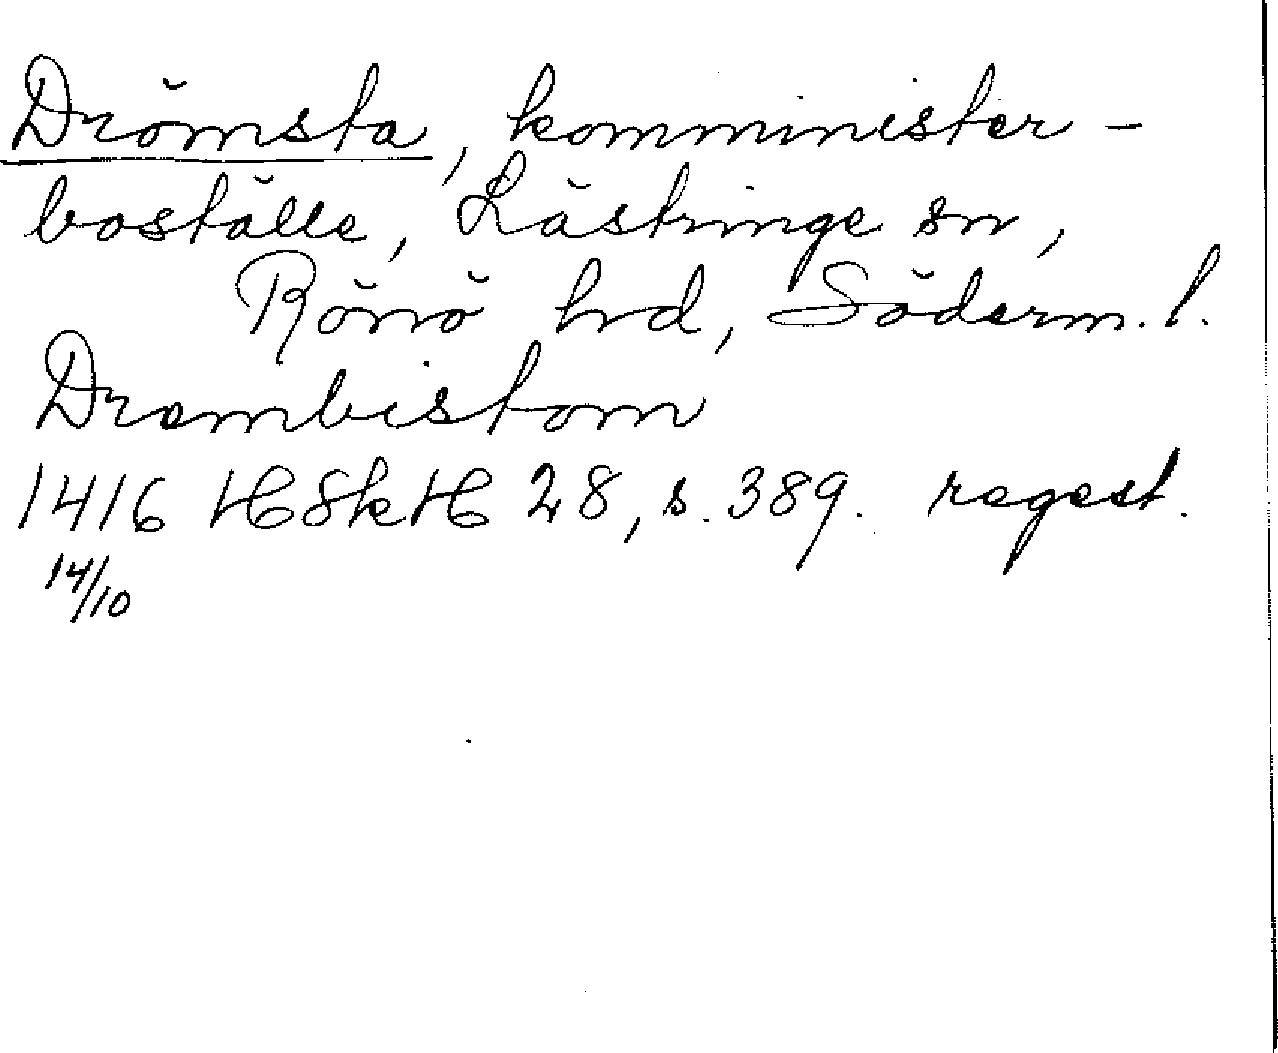 Drömsta, komminister-
boställe, Lästringe sn,
Rönö hrd, Söderm. l.
Drembistom
1416 HSkH 28, s. 389. regest.
14/10